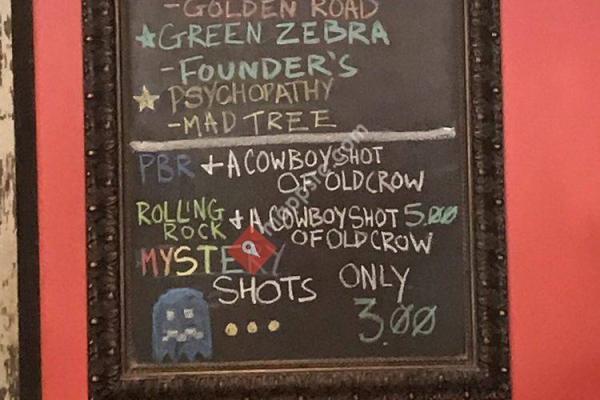 -GOLDEN ROAD
★GREEN ZEBRA
-FOUNDER'S
★PSYCHOPATHY
-MAD TREE
PBR + A COWBOY SHOT
OF OLD CROW
ROLLING ROCK + A COWBOY SHOT 5.00
OF OLD CROW
MYSTERY
SHOTS ONLY
3.00